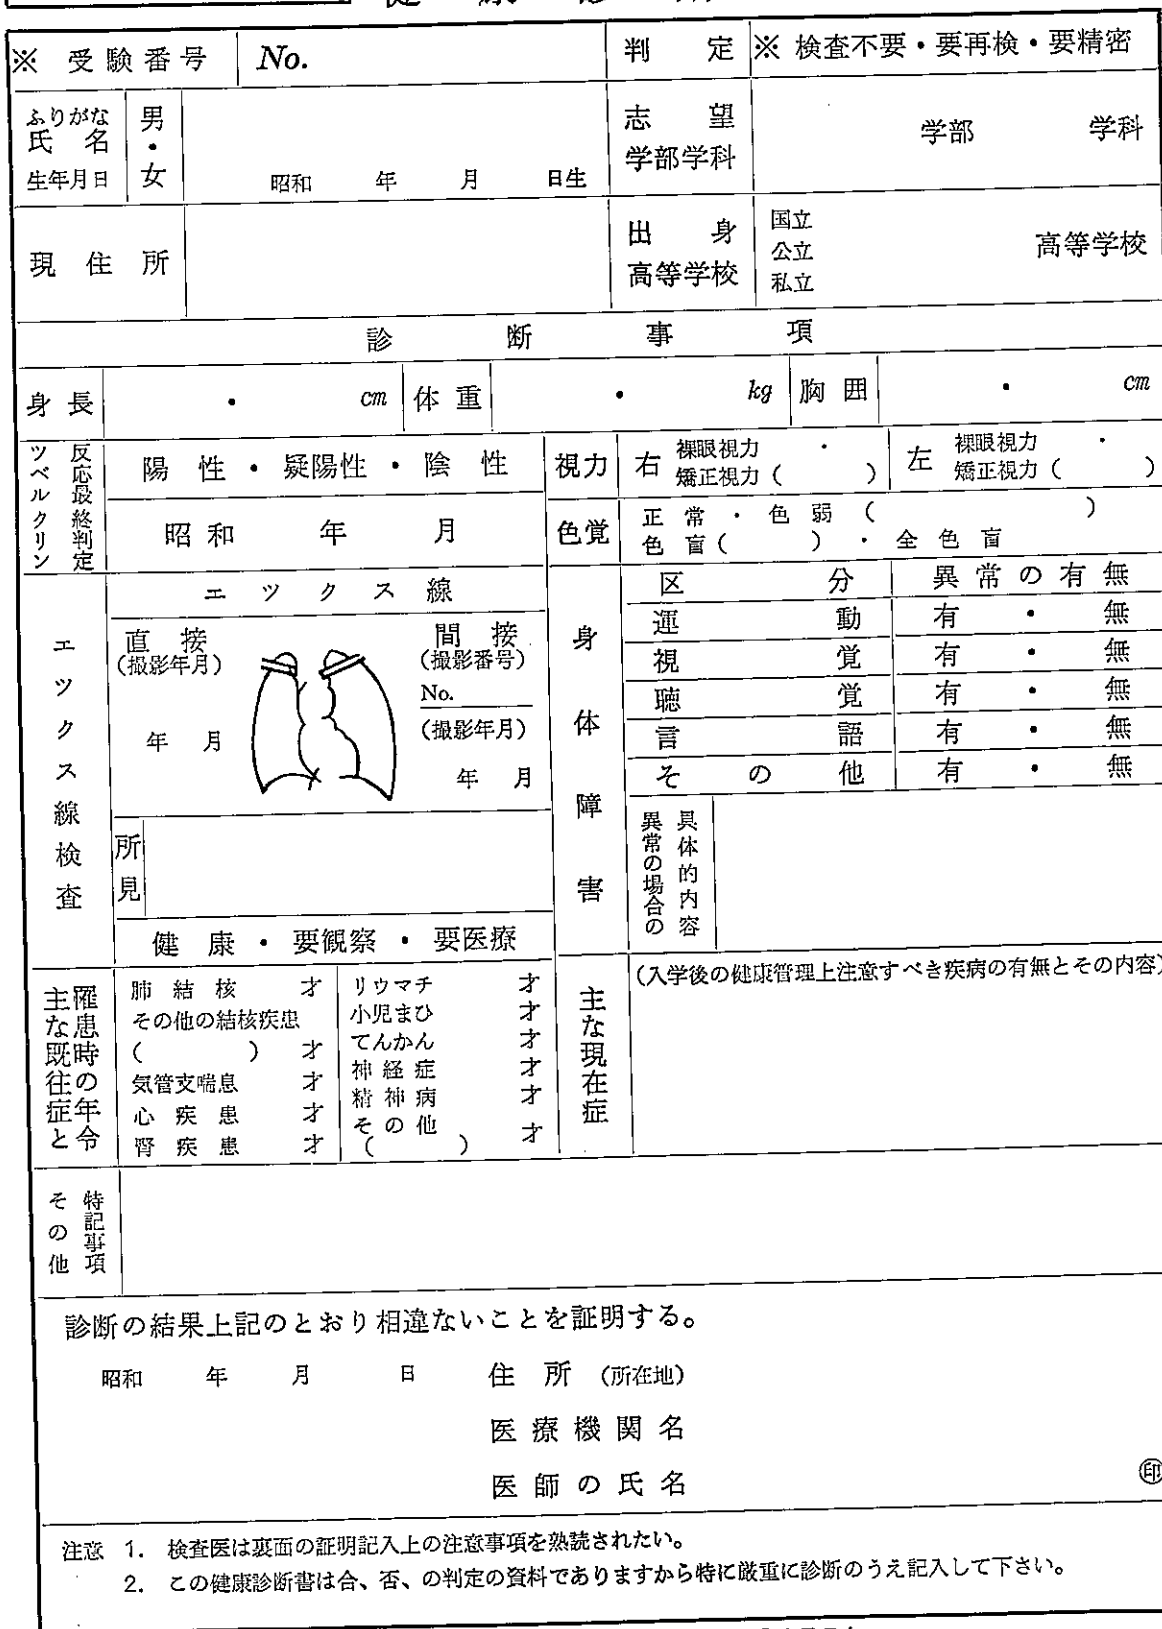 ※ 受験番号 No. 判定 ※ 検査不要・要再検・要精密
ふりがな
氏名
生年月日
男・女
昭和 年 月 日生
志望
学部学科
学部 学科
現住所
出身
高等学校
国立
公立
私立
高等学校
診断事項
身長 ・ cm 体重 ・ kg 胸囲 ・ cm
ツベルクリン
反応最終判定
陽性・疑陽性・陰性
昭和 年 月
視力 右 裸眼視力 ・
矯正視力( )
左 裸眼視力 ・
矯正視力( )
色覚 正常・色弱( )
色盲( )・全色盲
エツクス線検査
エツクス線
直接
(撮影年月)
年 月
間接
(撮影番号)
No.
(撮影年月)
年 月
所見
健康・要観察・要医療
身体障害
区分 異常の有無
運動 有・無
視覚 有・無
聴覚 有・無
言語 有・無
その他 有・無
異常の場合の
具体的内容
主な既往症と
罹患時の年令
肺結核 才
その他の結核疾患
( ) 才
気管支喘息 才
心疾患 才
腎疾患 才
リウマチ 才
小児まひ 才
てんかん 才
神経症 才
精神病 才
その他
( ) 才
主な現在症
(入学後の健康管理上注意すべき疾病の有無とその内容)
その他
特記事項
診断の結果上記のとおり相違ないことを証明する。
昭和 年 月 日 住所 (所在地)
医療機関名
医師の氏名 ㊞
注意 1. 検査医は裏面の証明記入上の注意事項を熟読されたい。
2. この健康診断書は合、否、の判定の資料でありますから特に厳重に診断のうえ記入して下さい。